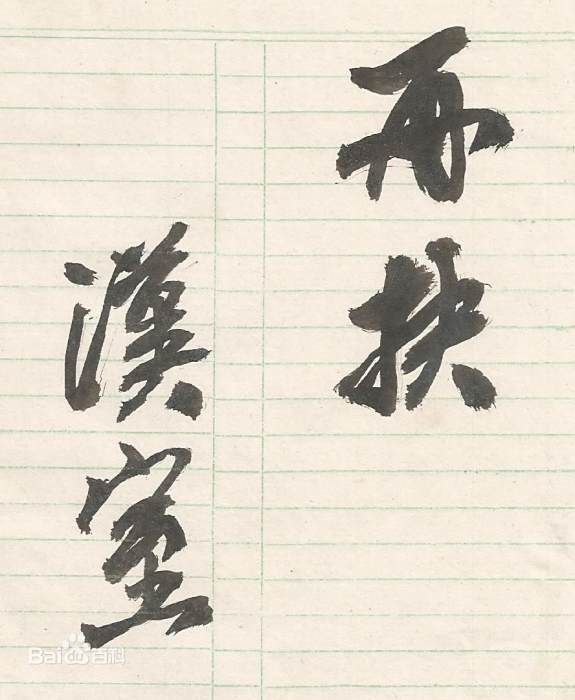 再扶
漢室
Bai百科